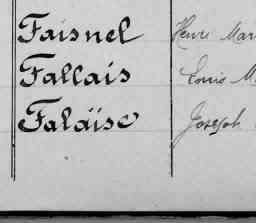 Faisnel Henri Mar
Fallais Louis M
Falaïse Joseph